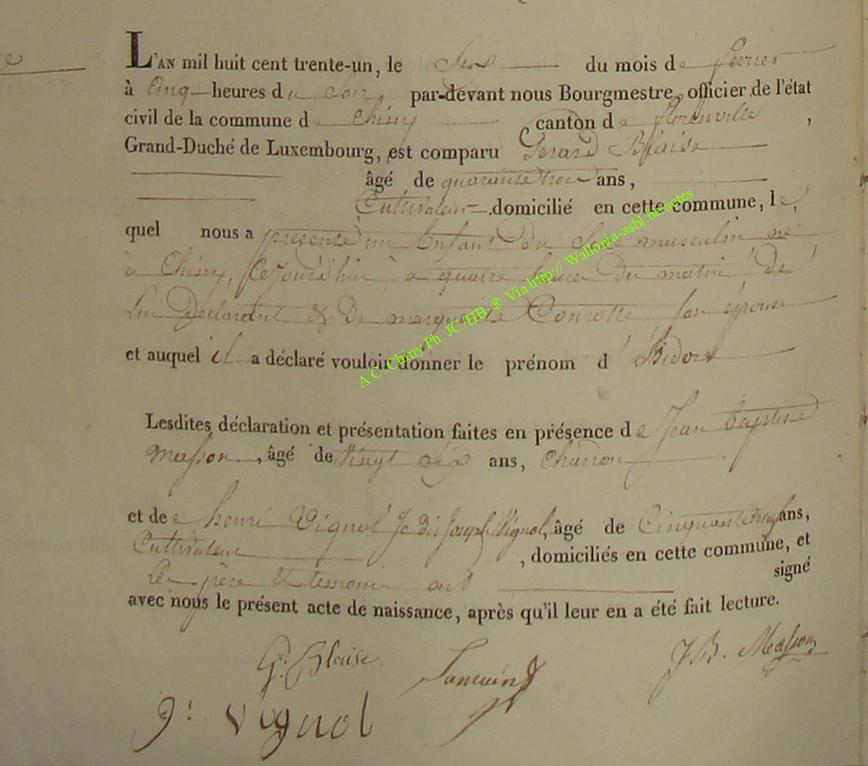 L'AN mil huit cent trente-un, le Six du mois de février
à Cinq heures du Soir, par-devant nous Bourgmestre, officier de l'état
civil de la commune de Chiny, canton de florenville,
Grand-Duché de Luxembourg, est comparu Gerard Blaise
âgé de quarante trois ans,
Cultivateur domicilié en cette commune, le
quel nous a présenté un Enfant du Sexe masculin né
à Chiny, ce jourd'hui, à quatre heures du matin de
Lui Déclarant & De marguerite Conrotte son épouse
et auquel il a déclaré vouloir donner le prénom d'Isidore
Lesdites déclaration et présentation faites en présence de Jean baptiste
Masson, âgé de vingt Six ans, Charron
et de henri Vignol Je dis Joseph Vignol, âgé de Cinquante ans,
Cultivateur, domiciliés en cette commune, et
Le père & temoins ont signé
avec nous le présent acte de naissance, après qu'il leur en a été fait lecture.
G. Blaise J B. Masson
J: Vignol
A C. Chiny Ph. JC/HB ® Via http:// Wallonia-asbl.be/actes